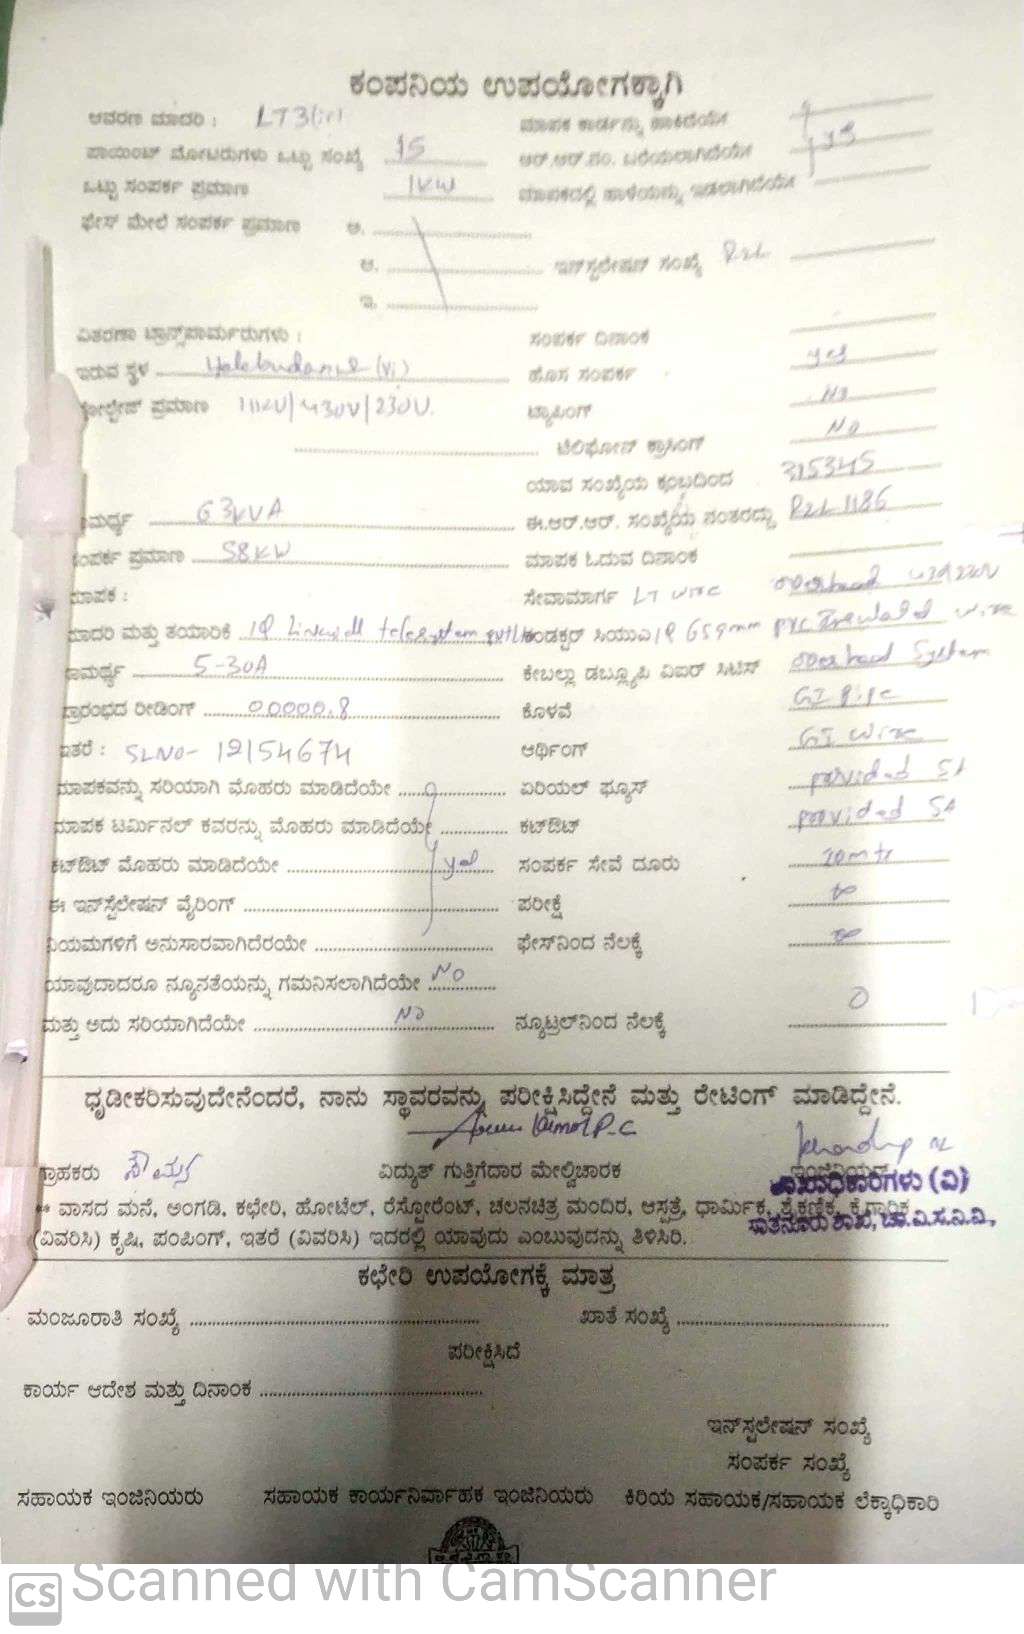 ಕಂಪನಿಯ ಉಪಯೋಗಕ್ಕಾಗಿ
ಆವರಣ ಮಾದರಿ : LT3(ii) ಮಾಪಕ ಕಾರ್ಡನ್ನು ಹಾಕಿದೆಯೇ
ಪಾಯಿಂಟ್ ಮೋಟರುಗಳು ಒಟ್ಟು ಸಂಖ್ಯೆ 15 ಆರ್.ಆರ್.ನಂ. ಬರೆಯಲಾಗಿದೆಯೇ yes
ಒಟ್ಟು ಸಂಪರ್ಕ ಪ್ರಮಾಣ 1KW ಮಾಪಕದಲ್ಲಿ ಹಾಳೆಯನ್ನು ಇಡಲಾಗಿದೆಯೇ
ಫೇಸ್ ಮೇಲೆ ಸಂಪರ್ಕ ಪ್ರಮಾಣ ಅ.
ಆ. ಇನ್‌ಸ್ಟಲೇಷನ್ ಸಂಖ್ಯೆ
ಇ.
ವಿತರಣಾ ಟ್ರಾನ್ಸ್‌ಫಾರ್ಮರುಗಳು : ಸಂಪರ್ಕ ದಿನಾಂಕ
ಇರುವ ಸ್ಥಳ ಹೊಸ ಸಂಪರ್ಕ yes
ವೋಲ್ಟೇಜ್ ಪ್ರಮಾಣ 11KV/430V/230V. ಟ್ಯಾಪಿಂಗ್ No
ಟೆಲಿಫೋನ್ ಕ್ರಾಸಿಂಗ್ No
ಯಾವ ಸಂಖ್ಯೆಯ ಕಂಬದಿಂದ 315345
ಸಾಮರ್ಥ್ಯ 63KVA ಈ.ಆರ್.ಆರ್. ಸಂಖ್ಯೆಯ ನಂತರದ್ದು 1186
ಸಂಪರ್ಕ ಪ್ರಮಾಣ 58KW ಮಾಪಕ ಓದುವ ದಿನಾಂಕ
ಮಾಪಕ : ಸೇವಾಮಾರ್ಗ LT wire overhead
ಮಾದರಿ ಮತ್ತು ತಯಾರಿಕೆ 1Φ Linkwell telesystem pvt ಕಂಡಕ್ಟರ್ ಸಿಯುಎ PVC Insulated wire
ಸಾಮರ್ಥ್ಯ 5-30A ಕೇಬಲ್ಲು ಡಬ್ಲ್ಯೂಪಿ ವಿಐಆರ್ ಸಿಟಿಸ್ overhead System
ಪ್ರಾರಂಭದ ರೀಡಿಂಗ್ 00000.8 ಕೊಳವೆ GI Pipe
ಇತರೆ : SLNO- 12154674 ಅರ್ಥಿಂಗ್ GI wire
ಮಾಪಕವನ್ನು ಸರಿಯಾಗಿ ಮೊಹರು ಮಾಡಿದೆಯೇ ಏರಿಯಲ್ ಫ್ಯೂಸ್ provided 5A
ಮಾಪಕ ಟರ್ಮಿನಲ್ ಕವರನ್ನು ಮೊಹರು ಮಾಡಿದೆಯೇ ಕಟ್‌ಔಟ್ provided 5A
ಕಟ್‌ಔಟ್ ಮೊಹರು ಮಾಡಿದೆಯೇ yes ಸಂಪರ್ಕ ಸೇವೆ ದೂರು 20mtr
ಈ ಇನ್‌ಸ್ಟೆಲೇಷನ್ ವೈರಿಂಗ್ ಪರೀಕ್ಷೆ ∞
ನಿಯಮಗಳಿಗೆ ಅನುಸಾರವಾಗಿದೆರಯೇ ಫೇಸ್‌ನಿಂದ ನೆಲಕ್ಕೆ ∞
ಯಾವುದಾದರೂ ನ್ಯೂನತೆಯನ್ನು ಗಮನಿಸಲಾಗಿದೆಯೇ No
ಮತ್ತು ಅದು ಸರಿಯಾಗಿದೆಯೇ No ನ್ಯೂಟ್ರಲ್‌ನಿಂದ ನೆಲಕ್ಕೆ 0
ಧೃಡೀಕರಿಸುವುದೇನೆಂದರೆ, ನಾನು ಸ್ಥಾವರವನ್ನು ಪರೀಕ್ಷಿಸಿದ್ದೇನೆ ಮತ್ತು ರೇಟಿಂಗ್ ಮಾಡಿದ್ದೇನೆ.
ಗ್ರಾಹಕರು ಸೌಮ್ಯ ವಿದ್ಯುತ್ ಗುತ್ತಿಗೆದಾರ ಮೇಲ್ವಿಚಾರಕ
ಶಾಖಾಧಿಕಾರಿಗಳು (ವಿ)
ಸಾತನೂರು ಶಾಖೆ, ಚಾ.ವಿ.ಸ.ನಿ.ನಿ.,
** ವಾಸದ ಮನೆ, ಅಂಗಡಿ, ಕಛೇರಿ, ಹೋಟೆಲ್, ರೆಸ್ಟೋರೆಂಟ್, ಚಲನಚಿತ್ರ ಮಂದಿರ, ಆಸ್ಪತ್ರೆ, ಧಾರ್ಮಿಕ, ಶೈಕ್ಷಣಿಕ, ಕೈಗಾರಿಕ
(ವಿವರಿಸಿ) ಕೃಷಿ, ಪಂಪಿಂಗ್, ಇತರೆ (ವಿವರಿಸಿ) ಇದರಲ್ಲಿ ಯಾವುದು ಎಂಬುವುದನ್ನು ತಿಳಿಸಿರಿ.
ಕಛೇರಿ ಉಪಯೋಗಕ್ಕೆ ಮಾತ್ರ
ಮಂಜೂರಾತಿ ಸಂಖ್ಯೆ ಖಾತೆ ಸಂಖ್ಯೆ
ಪರೀಕ್ಷಿಸಿದೆ
ಕಾರ್ಯ ಆದೇಶ ಮತ್ತು ದಿನಾಂಕ
ಇನ್‌ಸ್ಟಲೇಷನ್ ಸಂಖ್ಯೆ
ಸಂಪರ್ಕ ಸಂಖ್ಯೆ
ಸಹಾಯಕ ಇಂಜಿನಿಯರು ಸಹಾಯಕ ಕಾರ್ಯನಿರ್ವಾಹಕ ಇಂಜಿನಿಯರು ಕಿರಿಯ ಸಹಾಯಕ/ಸಹಾಯಕ ಲೆಕ್ಕಾಧಿಕಾರಿ
CS Scanned with CamScanner